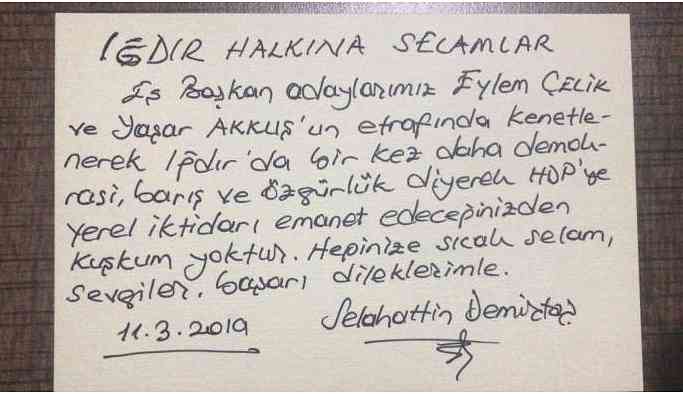 IĞDIR HALKINA SELAMLAR
Eş Başkan adaylarımız Eylem ÇELİK
ve Yaşar AKKUŞ'un etrafında kenetle-
nerek Iğdır'da bir kez daha demok-
rasi, barış ve özgürlük diyerek HDP'ye
yerel iktidarı emanet edeceğinizden
kuşkum yoktur. Hepinize sıcak selam,
sevgiler, başarı dileklerimle.
11.3.2019 Selahattin Demirtaş